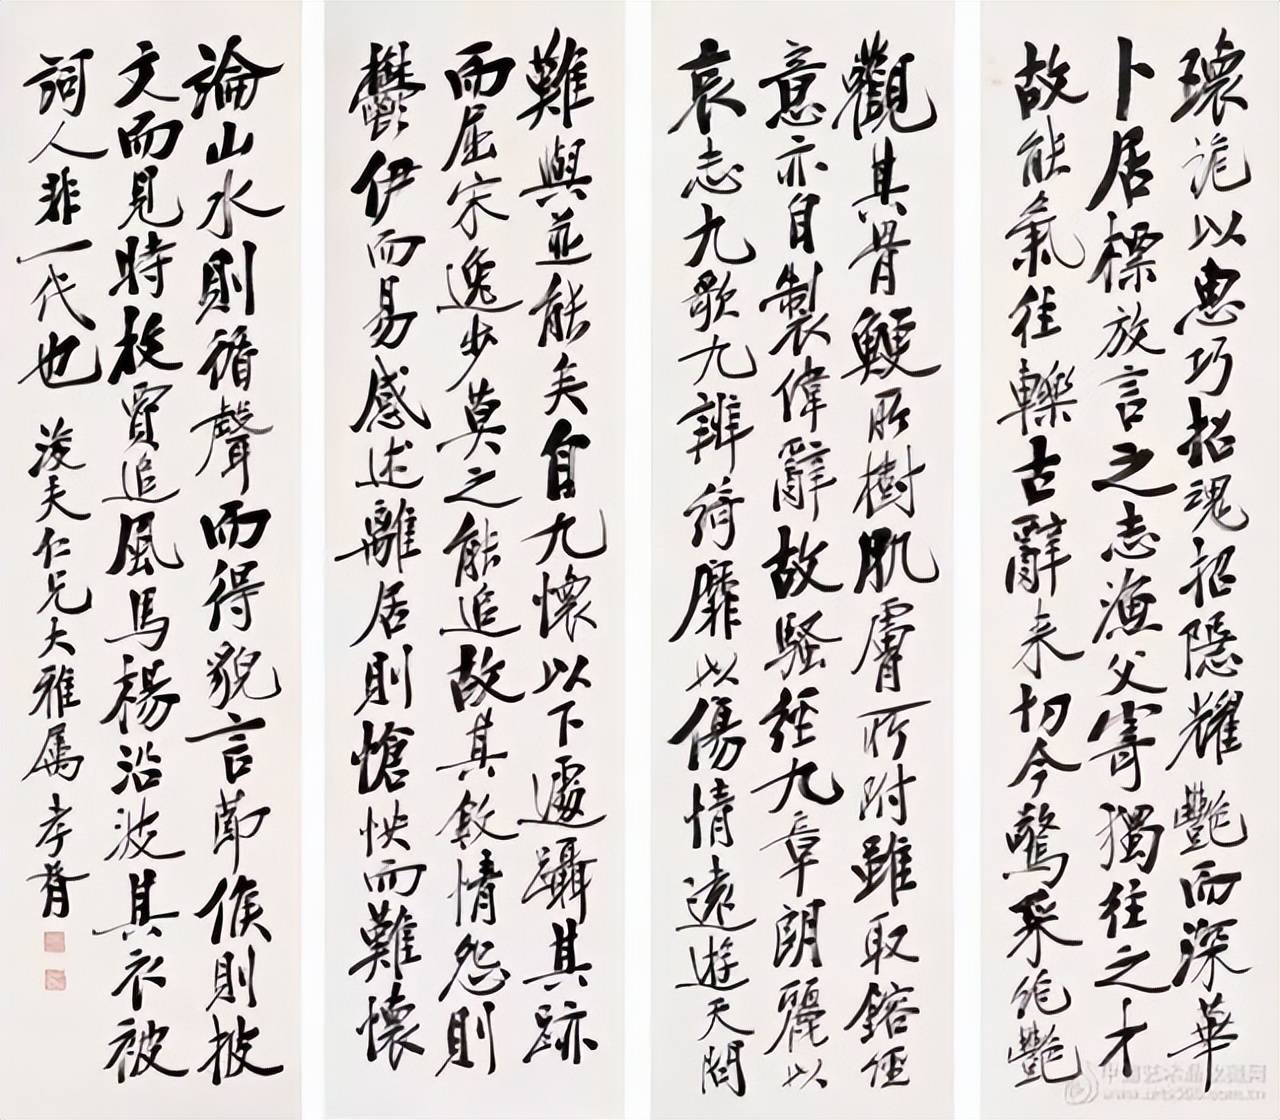 瓌詭以惠巧招魂招隱耀艷而深華
卜居標放言之志漁父寄獨往之才
故能氣往轢古辭来切今驚采絶艷
觀其骨鯁所樹肌膚所附雖取鎔經
意亦自製偉辭故騷經九章朗麗以
哀志九歌九辨綺靡以傷情遠遊天問
難與並能矣自九懷以下遽躡其跡
而屈宋逸步莫之能追故其敘情怨則
鬱伊而易感述離居則愴怏而難懷
論山水則循聲而得貌言節候則披
文而見時枚賈追風馬楊沿波其衣被
詞人非一代也 浚夫仁兄大雅屬 孝胥